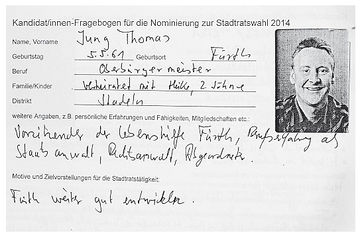 Kandidat/innen-Fragebogen für die Nominierung zur Stadtratswahl 2014
Name, Vorname Jung Thomas
Geburtstag 5.5.61 Geburtsort Fürth
Beruf Oberbürgermeister
Familie/Kinder Verheiratet mit 2 Söhne
Distrikt Stadeln
weitere Angaben, z.B. persönliche Erfahrungen und Fähigkeiten, Mitgliedschaften etc.:
Vorsitzender der Lebenshilfe Fürth, Berufserfahrung als
Staatsanwalt, Rechtsanwalt, Abgeordneter.
Motive und Zielvorstellungen für die Stadtratstätigkeit.
Fürth weiter gut entwickeln.